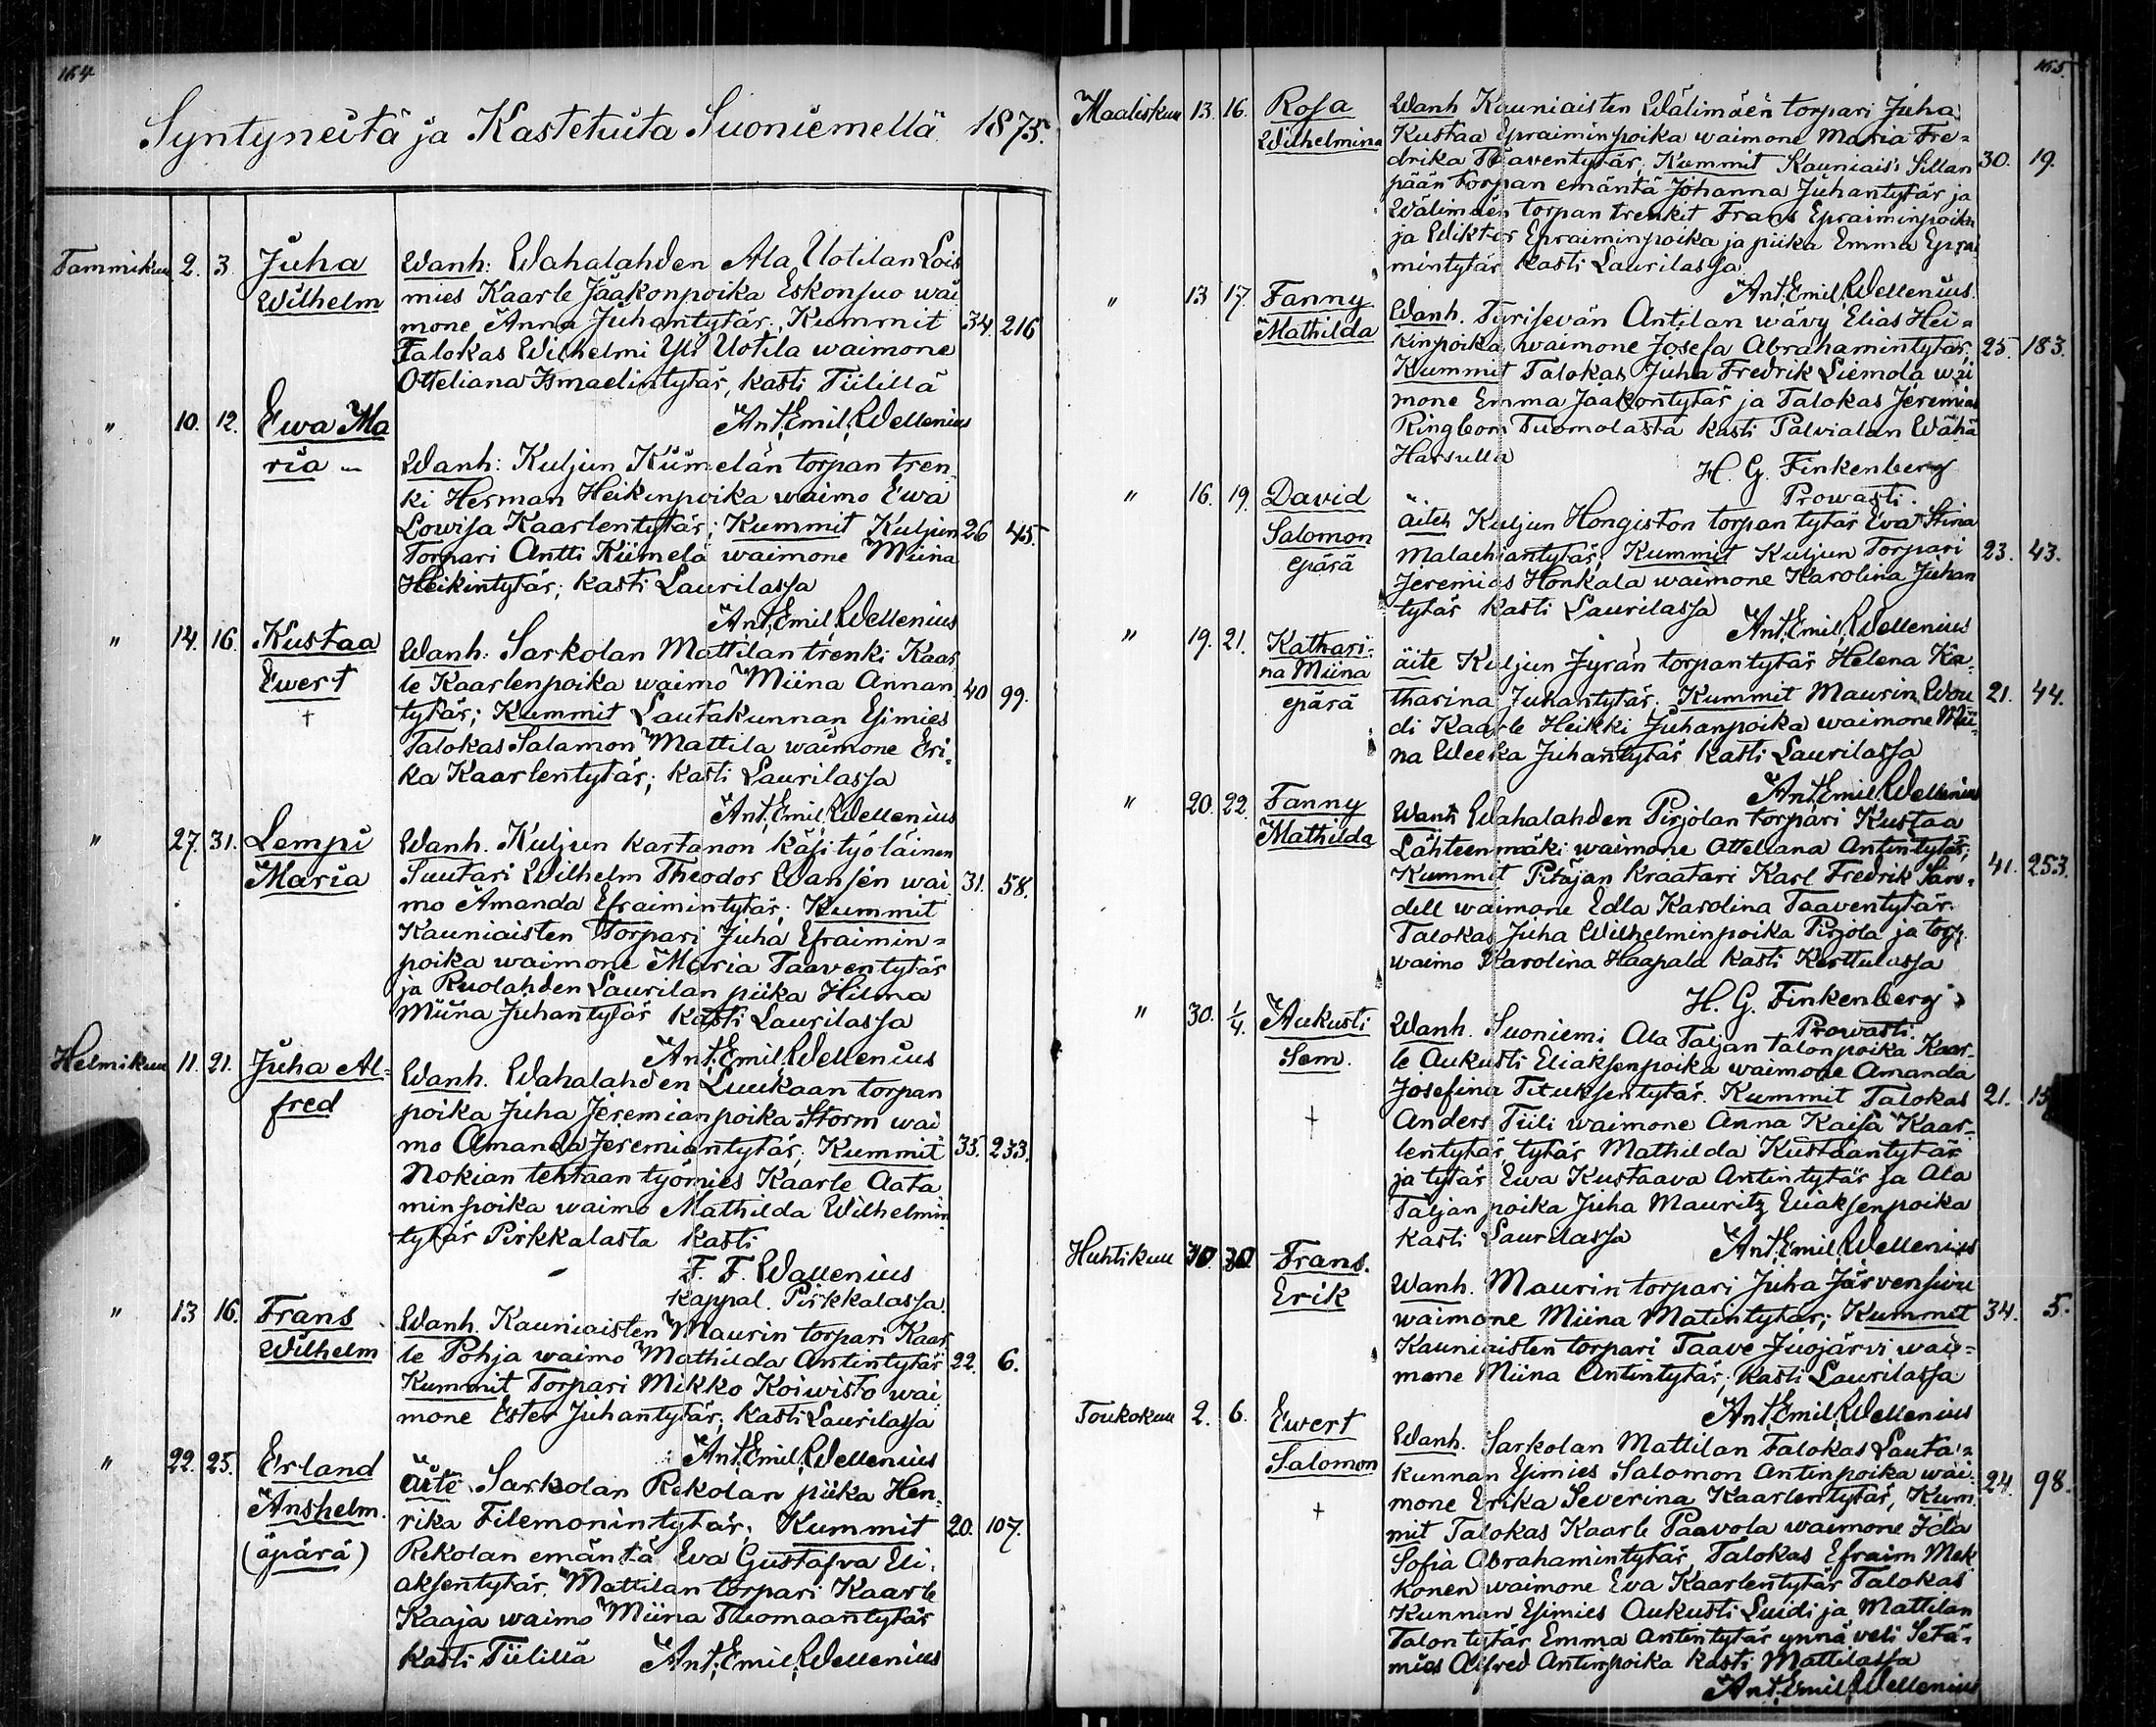 164
Syntyneitä ja Kastetuita Suoniemellä 1875.
Tammikuu 2. 3. Juha Wanh: Wahalahden Ala Uotilan Lois
Wilhelm mies Kaarle Jaakonpoika Eskonsuo wai
mone Anna Juhantytär, Kummit 34. 216
Talokas Wilhelmi Yli Uotila waimone
Otteliana Ismaelintytär, kasti Tiilillä
" 10. 12. Ewa Ma Ant. Emil. Wellenius
ria Wanh: Kuljun Kiimelän torpan tren
ki Herman Heikinpoika waimo Ewa
Lowisa Kaarlentytär; Kummit Kuljun 26 45.
Torpari Antti Kiimelä waimone Miina
Heikintytär; kasti Laurilassa
Ant. Emil. Wellenius
" 14. 16. Kustaa Wanh: Sarkolan Mattilan trenki Kaar
Ewert le Kaarlenpoika waimo Miina Annan 40 99.
† tytär; Kummit Lautakunnan Esimies
Talokas Salamon Mattila waimone Eri-
ka Kaarlentytär; kasti Laurilassa
Ant. Emil. Wellenius
" 27. 31. Lempi Wanh. Kuljun kartanon käsityöläinen
Maria Suutari Wilhelm Theodor Wansén wai 31. 58.
mo Amanda Efraimintytär; Kummit
Kauniaisten Torpari Juha Efraimin=
poika waimone Maria Taaventytär
ja Ruolahden Laurilan piika Hilma
Miina Juhantytär kasti Laurilassa
Ant. Emil. Wellenius
Helmikuu 11. 21. Juha Al- Wanh. Wahalahden Luukaan torpan
fred poika Juha Jeremianpoika Storm wai
mo Amanda Jeremiantytär; Kummit 35. 233.
Nokian tehtaan työmies Kaarle Aata
minpoika waimo Mathilda Wilhelmin
tytär Pirkkalasta kasti
F. F. Wallenius
Kappal. Pirkkalassa
" 13 16. Frans Wanh. Kauniaisten Maurin torpari Kaar
Wilhelm le Pohja waimo Mathilda Antintytär 22. 6.
Kummit Torpari Mikko Koiwisto wai
mone Ester Juhantytär; kasti Laurilassa
Ant. Emil. Wellenius
" 22. 25. Erland äite Sarkolan Rekolan piika Hen-
Anshelm. rika Filemonintytär; Kummit 20. 107.
(äpärä) Rekolan emäntä Eva Gustafva Eli-
aksentytär, Mattilan torpari Kaarle
Kaaja waimo Miina Thomaantytär
kasti Tiilillä Ant. Emil. Wellenius
165.
Maaliskuu 13. 16. Rosa Wanh Kauniaisten Wälimäen torpari Juha
Wilhelmina Kustaa Epraiminpoika waimone Maria Fre=
drika Taaventytär; Kummit Kauniais: Sillan 30. 19.
pään torpan emäntä Johanna Juhantytär ja
Wälimäen torpan trenkit Frans Epraiminpoika
ja Wiktor Epraiminpoika ja piika Emma Eprai
mintytär kasti Laurilassa
Ant. Emil. Wellenius.
" 13 17. Fanny Wanh. Tyrisevän Antilan wävy Elias Hei=
Mathilda kinpoika waimone Josefa Abrahamintytär; 25. 183.
Kummit Talokas Juha Fredrik Liemola wai
mone Emma Jaakontytär ja Talokas Jeremias
Ringbom Tuomolasta kasti Palvialan Wähä
Harsulla H. G. Finkenberg
Prowasti.
" 16. 19. David äiteh Kuljun Hongiston torpan tytär Eva Stina
Salomon Malachiantytär; Kummit Kuljun Torpari 23. 43.
epärä Jeremias Honkala waimone Karolina Juhan
tytär kasti Laurilassa
Ant. Emil. Wellenius
" 19. 21. Kathari- äite Kuljun Jyrän torpan tytär Helena Ka-
na Miina tharina Juhantytär. Kummit Maurin Wou 21. 44.
epärä di Kaarle Heikki Juhanpoika waimone Mii-
na Weeka Juhantytär kasti Laurilassa
Ant. Emil. Wellenius
" 20. 22. Fanny Wanh Wahalahden Pirjolan torpari Kustaa
Mathilda Lähteenmäki waimone Otteliana Antintytär;
Kummit Pitäjän kraatari Karl Fredrik San- 41. 253.
dell waimone Edla Karolina Taaventytär.
Talokas Juha Wilhelminpoika Pirjola ja torp.
waimo Karolina Haapala kasti Kerttulassa
H. G. Finkenberg
Prowasti.
" 30. 1/4. Aukusti Wanh. Suoniemi Ala Taijan talonpoika Kaar-
Sem. le Aukusti Eliaksenpoika waimone Amanda
Josefina Tituksentytär. Kummit Talokas 21. 15
† Anders Tiili waimone Anna Kaisa Kaar-
lentytär, tytär Mathilda Kustaantytär
ja tytär Ewa Kustaava Antintytär ja Ala
Taijan poika Juha Mauritz Eliaksenpoika
kasti Laurilassa Ant. Emil. Wellenius
Huhtikuu 30 30 Frans. Wanh. Maurin torpari Juha Järvensivu
Erik waimone Miina Matintytär; Kummit 34. 5.
Kauniaisten torpari Taave Juojärvi wai=
mone Miina Antintytär, kasti Laurilassa
Ant. Emil. Wellenius
Toukokuu 2. 6. Ewert Wanh. Sarkolan Mattilan Talokas Lauta=
Salomon kunnan Esimies Salomon Antinpoika wai- 24. 98.
mone Erika Severina Kaarlentytär, Kum
† mit Talokas Kaarle Paavola waimone Ida
Sofia Abrahamintytär, Talokas Efraim Mek
konen waimone Eva Kaarlentytär Talokas
Kunnan Esimies Aukusti Luidi ja Mattilan
Talon tytär Emma Antintytär ynnä veli Setä-
mies Alfred Antinpoika kasti Mattilassa
Ant. Emil. Wellenius